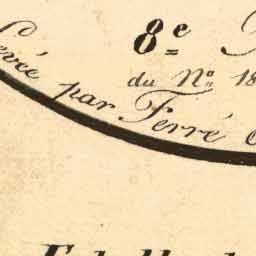 8e
du No 18
Levée par Ferré
Echelle d